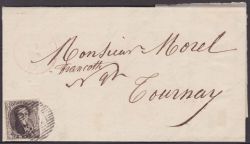 Monsieur Morel
Francotte
Tournay